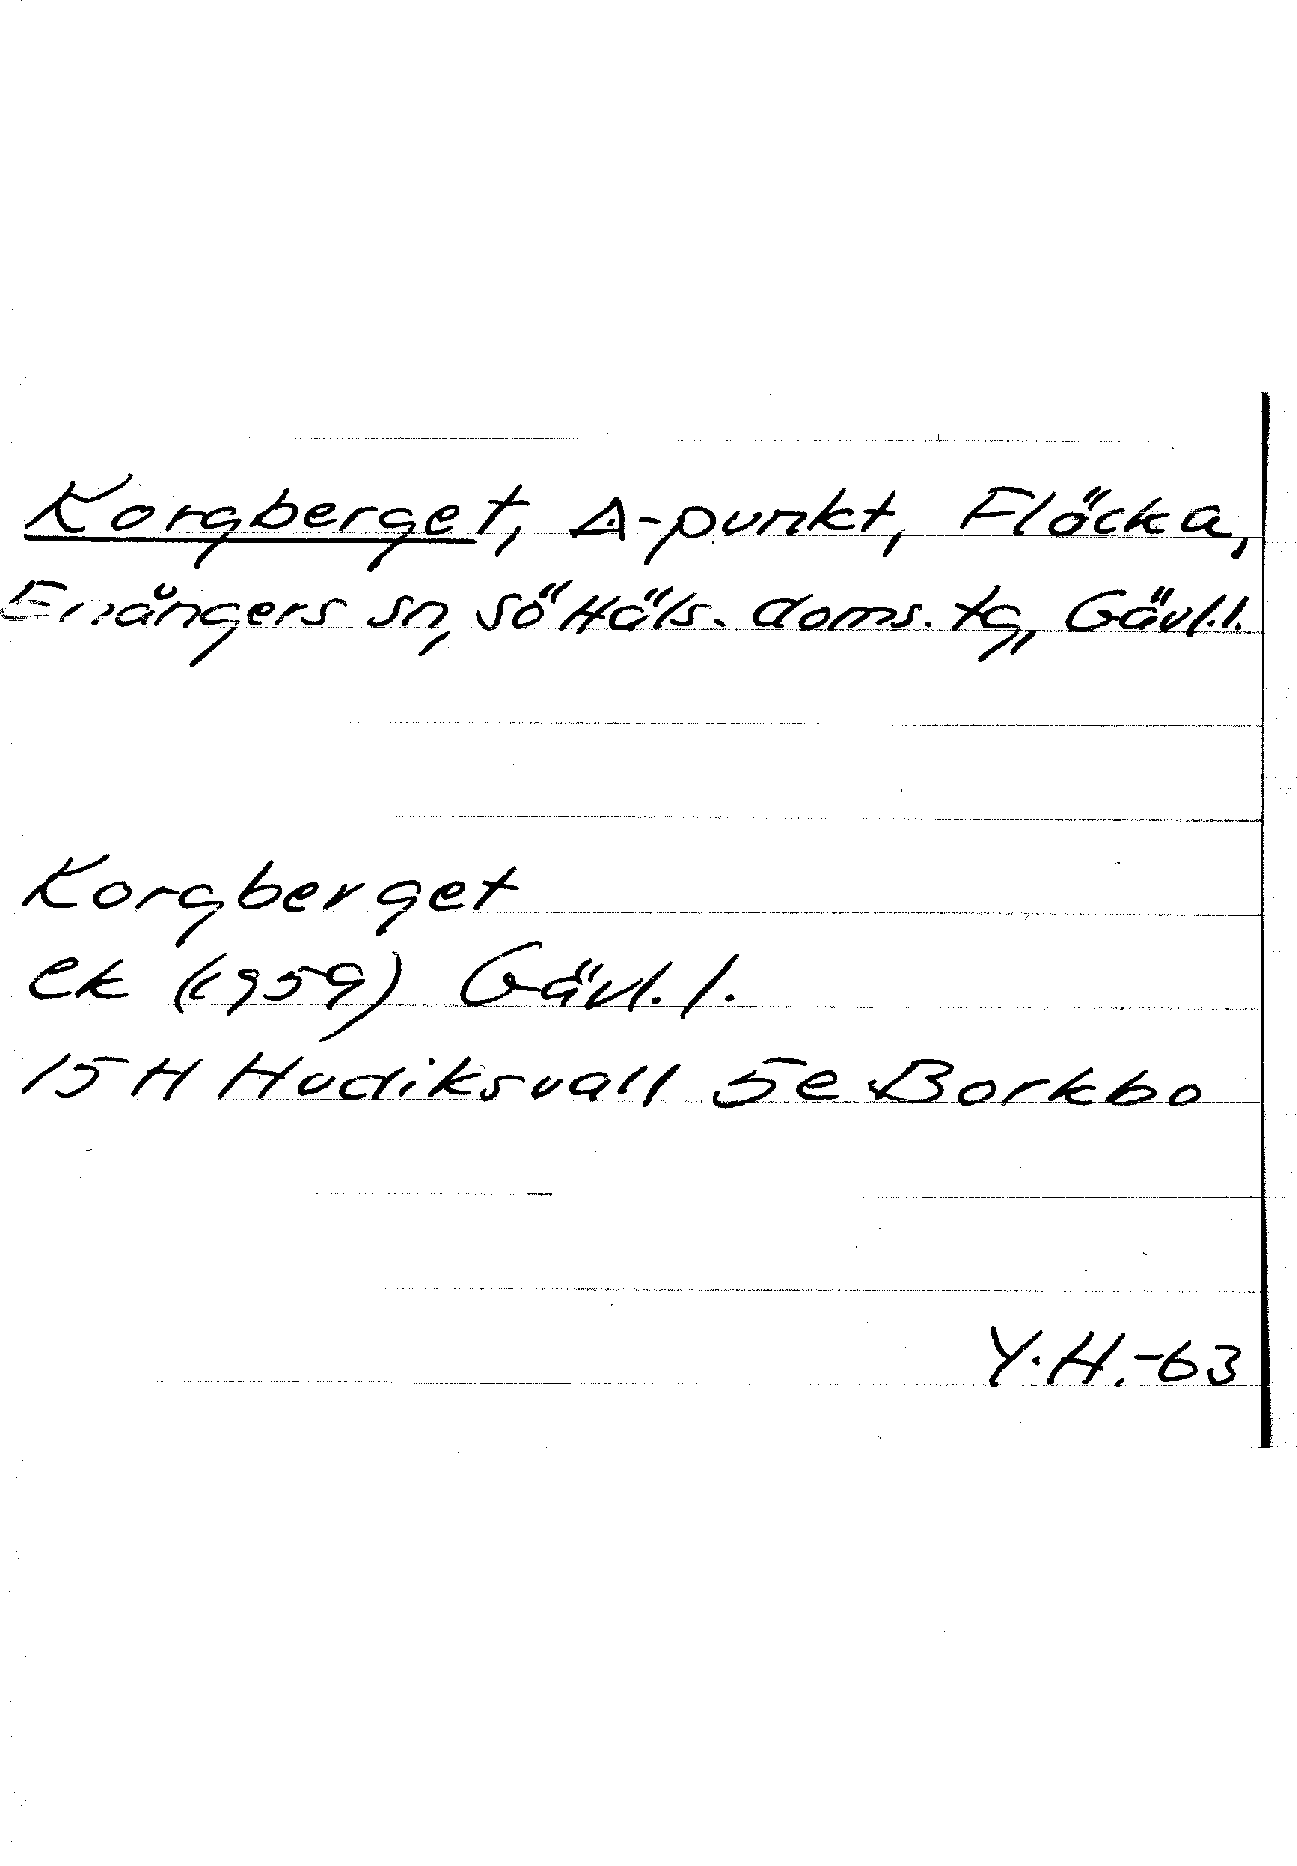 Korgberget, Δ-punkt, Flöcka,
Enångers sn, Sö Häls. doms. tg, Gävl.l.
Korgberget
ek (1959) Gävl. l.
15 H Hudiksvall 5e Borkbo
Y.H.-63